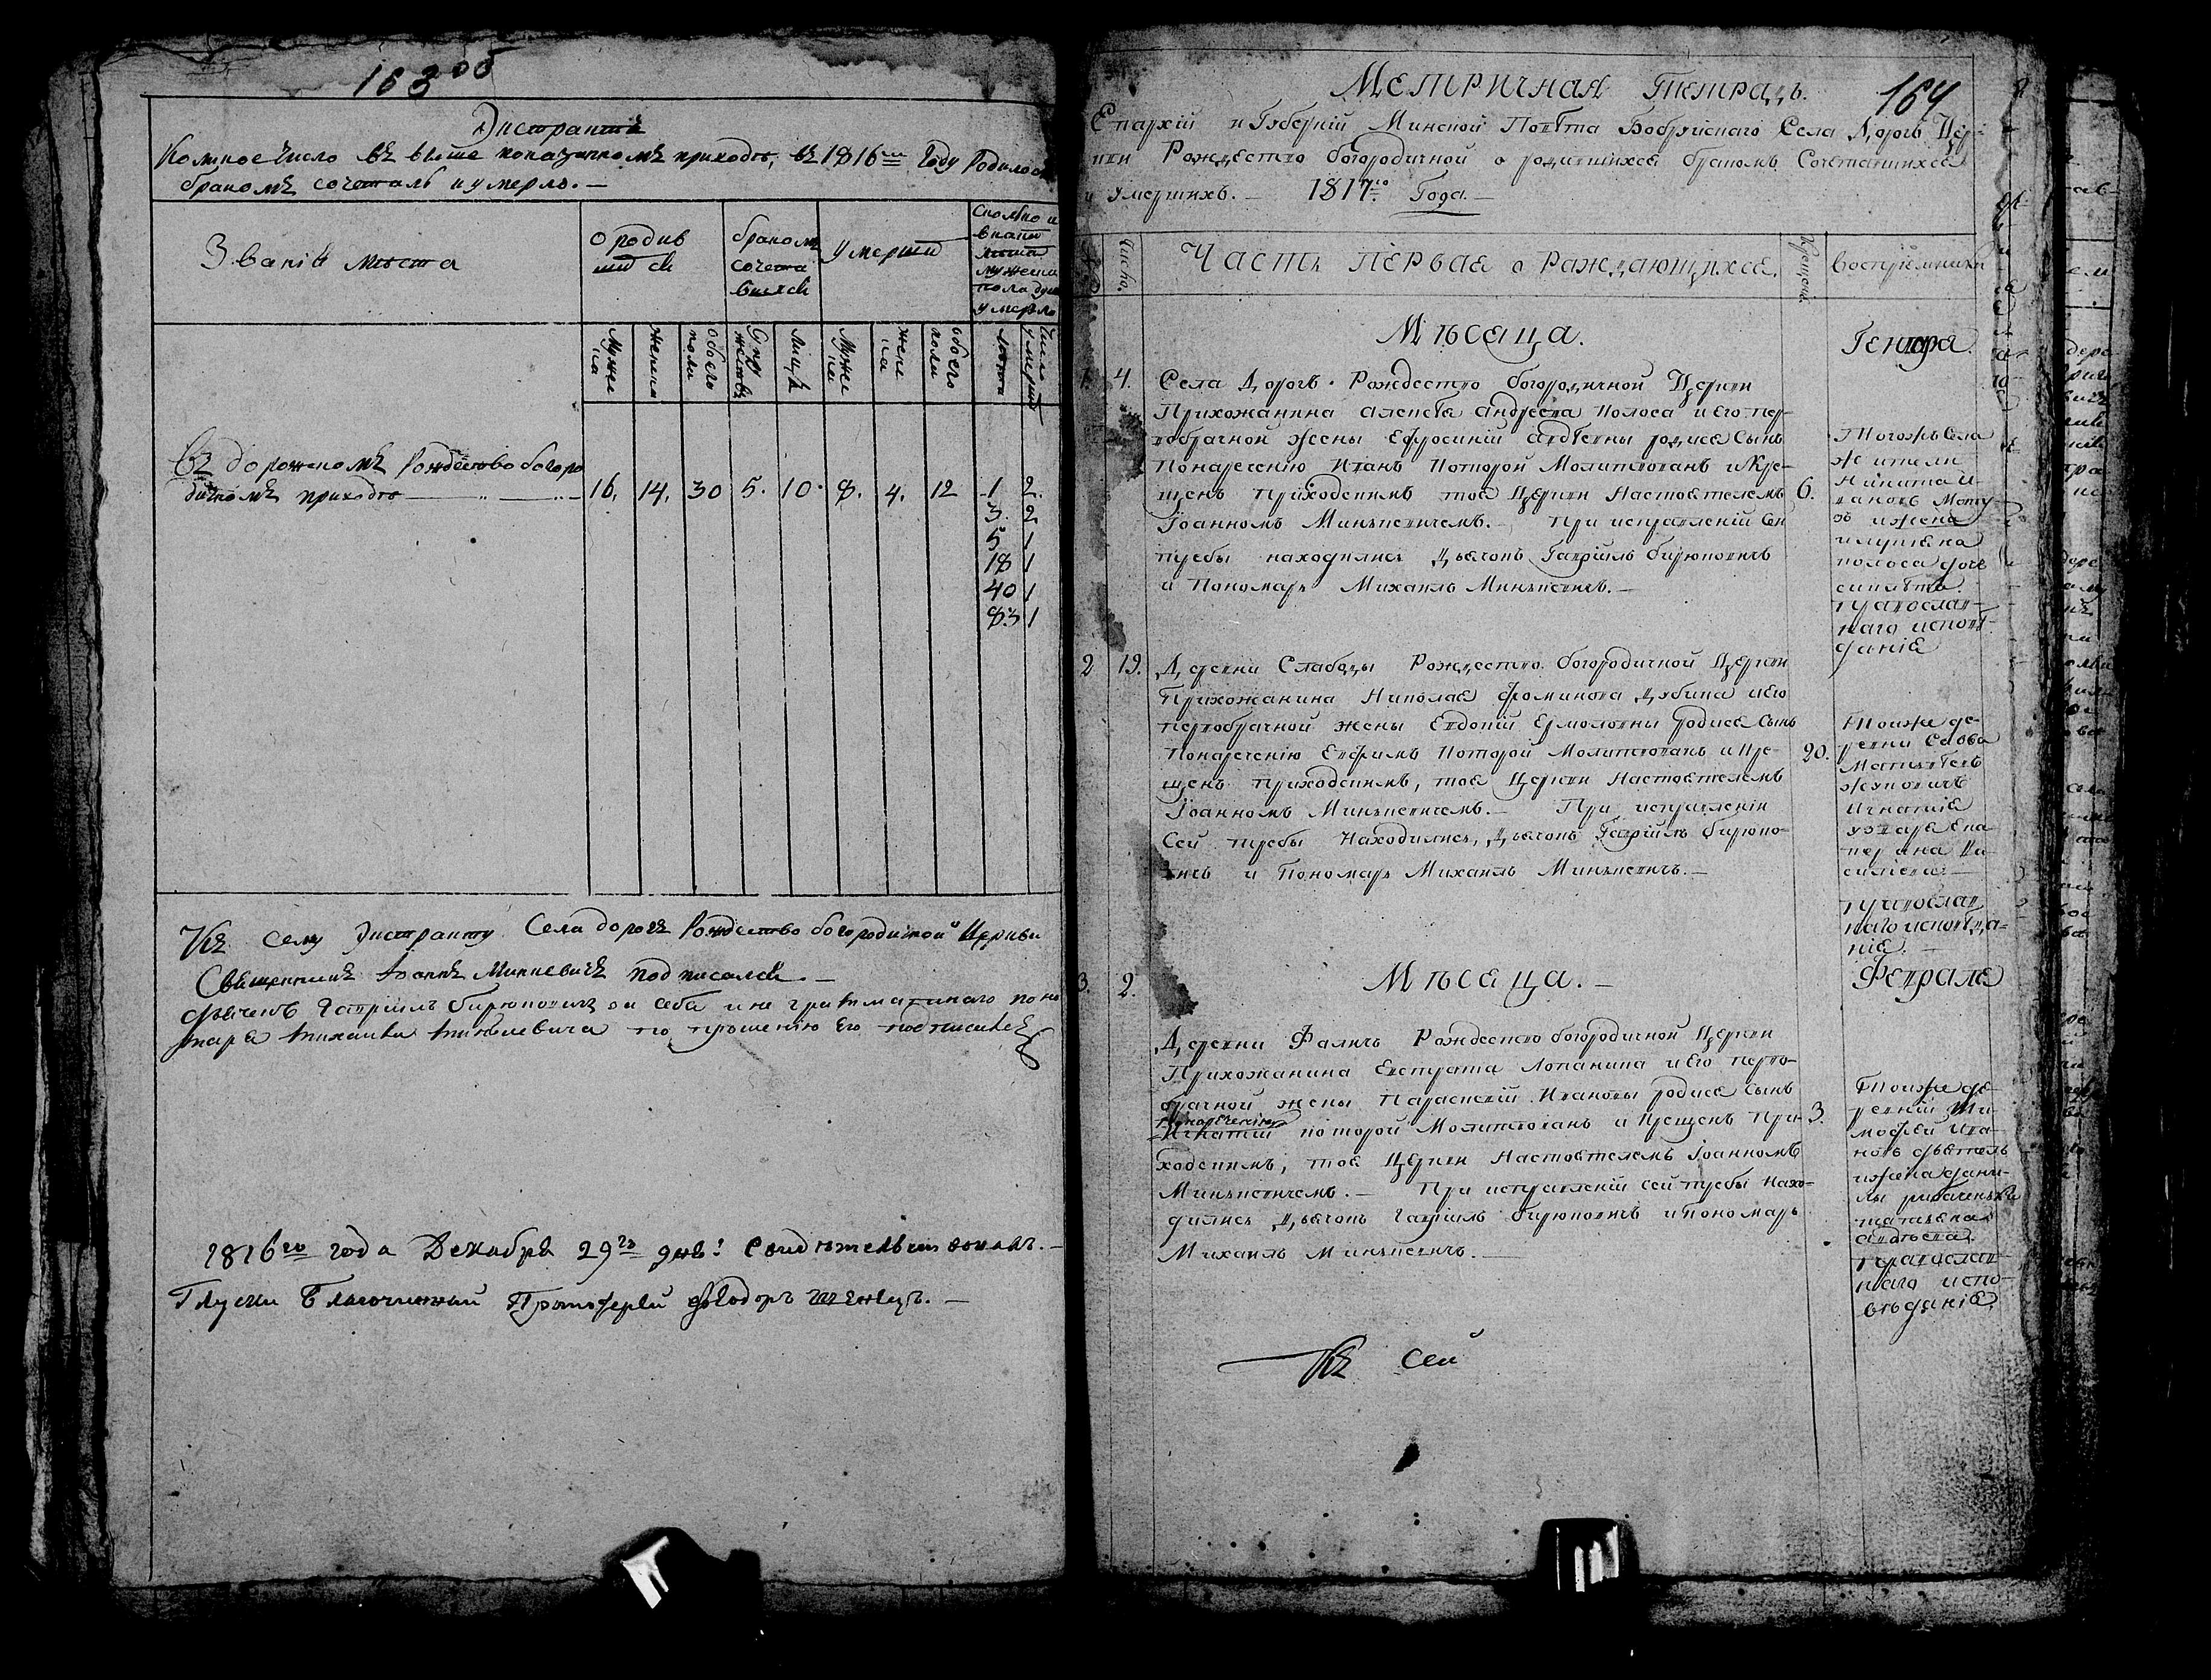 163 об
Экстрактъ
Коликое число въ выше показанномъ приходѣ, въ 1816мъ Году Родилось
бракомъ сочеталъ и умерло. —
Званіѣ мѣста
о родив
шихся
бракомъ
сочета
вшихся
умерши
Сколько и
в какие
лѣта
мужеска
пола душъ
умерло
Муже
ска
Женска
обоего
пола
Супру
жествъ
Лицъ
Муже
ска
женс
ка
обоего
пола
лѣта
Число
умерш
Въ дорожскомъ Рождество богоро
дичномъ приходѣ — „ — „ —
16. 14. 30 5. 10. 8. 4. 12 1 2.
3. 2
5 1
18 1
40 1
83 1
Къ сему Экстракту Села дорогъ Рождество богородичной Церкви
Священникъ Іоаннъ Минкевичъ подписался. —
дьячокъ Гавріилъ бирюковичъ за себя и не граматнаго поно
маря михаила минкевича по прошенію Его подписался
1816го года Декабря 29го дня: Свидѣтельствовалъ. —
Глускій Благочинный Протоіерей Ѳеодоръ —
164
Метричная Тетрадь.
Епархіи и Губерніи Минской Повѣта Бобруйскаго Села Дорогъ Цер-
кви Рождество богородичной о родившихся бракомъ Сочетавшихся
и Умершихъ. — 1817го Года. —
Число.
Часть первая о Раждающихся.
Крещенія.
Воспріемники
Мѣсяца.
Генваря.
1. 4. Села Дорогъ Рождество богородичной Церкви
Прихожанина алексѣя андреева Колоса и Его пер-
вобрачной Жены Ефросиніи авдѣевны родися Сынъ
Понаречению Иванъ Которой Молитвованъ и Кре-
щенъ приходскимъ тоя Церкви Настоятелемъ 6.
Іоанномъ Минкевичемъ. — При исправленіи Сей
требы находились Дьячокъ Гавріилъ бирюковичъ
и Пономарь Михаилъ Минкевичъ. —
Тогожъ Села
жители
Никита И-
вановъ
и жена
колоса
православ-
наго исповѣ-
данія
2 19. Деревни Слабоды Рождество богородичной Церкви
Прихожанина Николая фоминова Дубина и Его
первобрачной жены Евдокіи Ермоловны родися Сынъ
Понаречению Евфимъ Которой Молитвованъ и Кре-
щенъ приходскимъ, тоя Церкви Настоятелемъ 20.
Іоанномъ Минкевичемъ. — При исправленіи
Сей требы Находились, Дьячокъ Гавріилъ бирюко-
вичъ и Пономарь Михаилъ Минкевичъ. —
Тоижъ де-
ревни Савва
Игнатія
православ
наго исповѣда-
нія. —
Мѣсяца. —
Февраля
3. 2.
Деревни Фаличъ Рождество богородичной Церкви
Прихожанина Евстрата Лопанина и Его перво-
брачной жены Параскевіи Ивановы родися Сынъ
понаречению
Игнатій которой Молитвованъ и Крещенъ При- 3.
ходскимъ, тоя Церкви Настоятелемъ Іоанномъ
Минкевичемъ. — При исправленіи сей требы Нахо-
дились Дьячокъ Гавріилъ бирюковичъ и пономарь
Михаилъ Минкевичъ. —
Тоижъ де-
ревніи Ти-
мофей Ива-
новъ
и жена дани-
лы
татьяна
православ-
наго испо-
вѣданія.
Къ сей